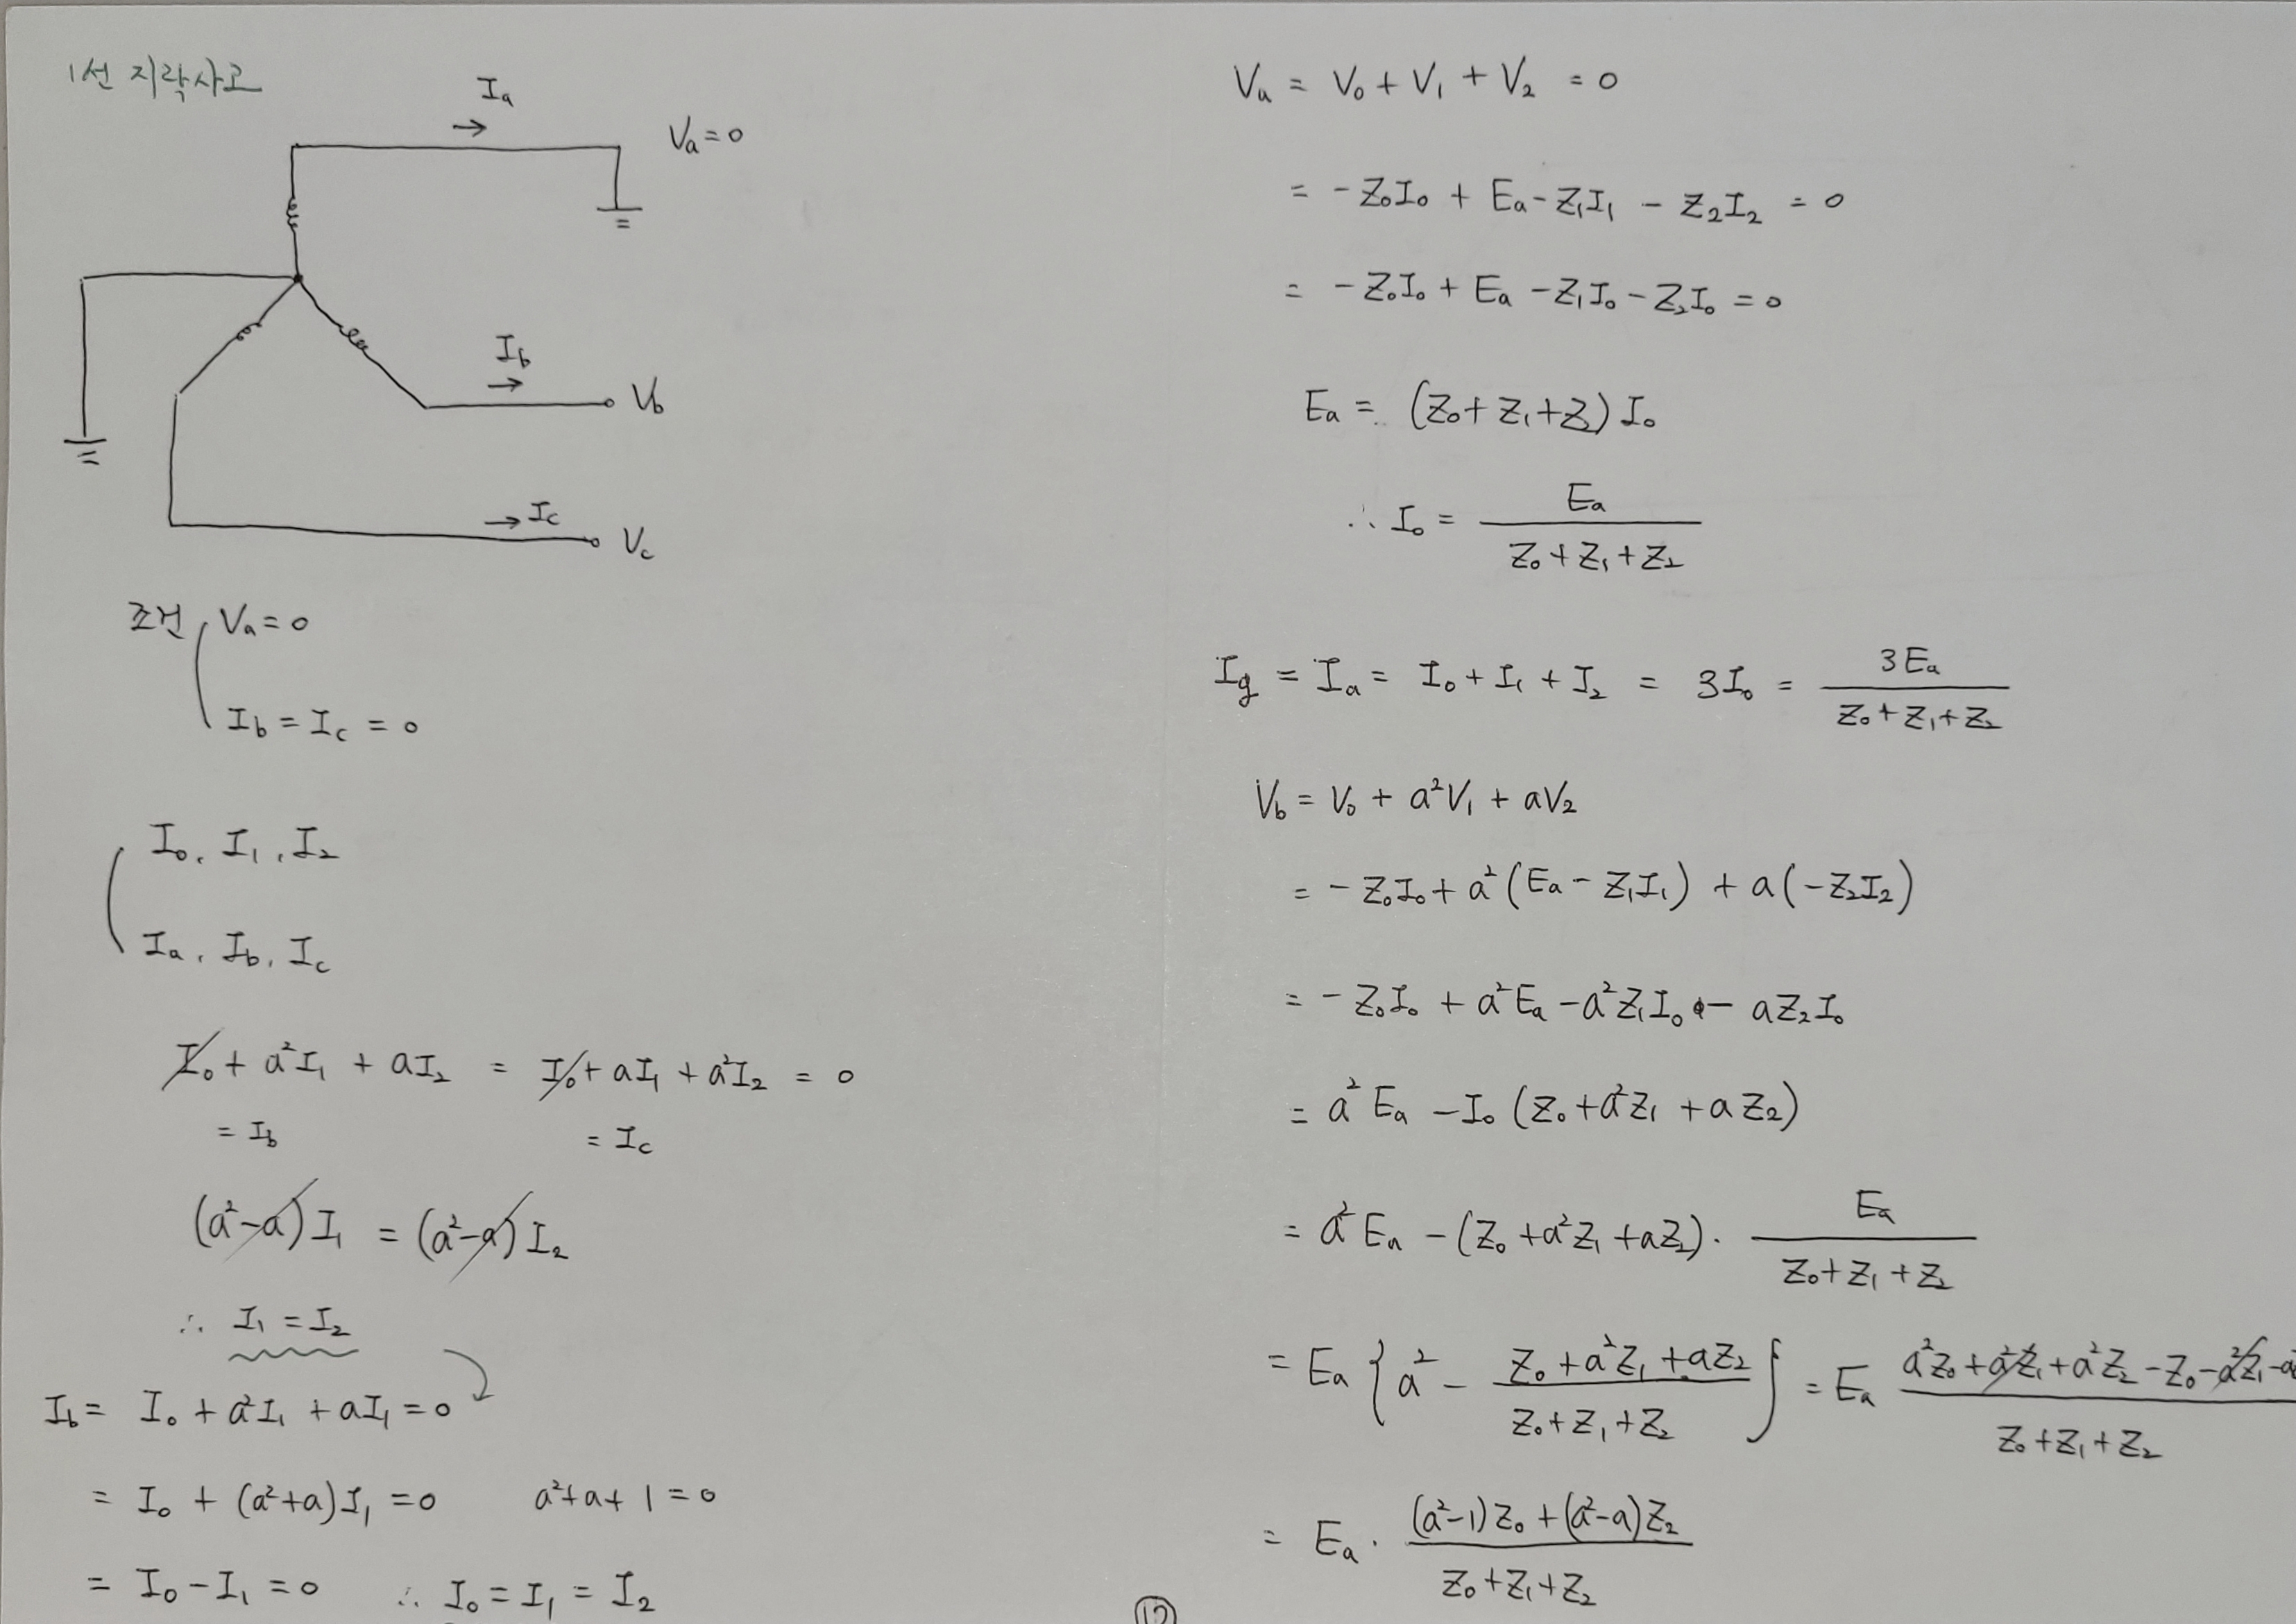 1선 지락사고
Ia
→
Va = 0
Ib
→
Vb
→ Ic
Vc
조건 Va = 0
Ib = Ic = 0
I₀, I₁, I₂
Ia, Ib, Ic
I₀ + a²I₁ + aI₂ = I₀ + aI₁ + a²I₂ = 0
= Ib = Ic
(a²-a)I₁ = (a²-a)I₂
∴ I₁ = I₂
Ib = I₀ + a²I₁ + aI₁ = 0
= I₀ + (a²+a)I₁ = 0 a²+a+1 = 0
= I₀ - I₁ = 0 ∴ I₀ = I₁ = I₂
Va = V₀ + V₁ + V₂ = 0
= -Z₀I₀ + Ea - Z₁I₁ - Z₂I₂ = 0
= -Z₀I₀ + Ea - Z₁I₀ - Z₂I₀ = 0
Ea = (Z₀ + Z₁ + Z₂) I₀
∴ I₀ = Ea / (Z₀ + Z₁ + Z₂)
Ig = Ia = I₀ + I₁ + I₂ = 3I₀ = 3Ea / (Z₀ + Z₁ + Z₂)
Vb = V₀ + a²V₁ + aV₂
= -Z₀I₀ + a²(Ea - Z₁I₁) + a(-Z₂I₂)
= -Z₀I₀ + a²Ea - a²Z₁I₀ - aZ₂I₀
= a²Ea - I₀(Z₀ + a²Z₁ + aZ₂)
= a²Ea - (Z₀ + a²Z₁ + aZ₂) · Ea / (Z₀ + Z₁ + Z₂)
= Ea { a² - (Z₀ + a²Z₁ + aZ₂) / (Z₀ + Z₁ + Z₂) } = Ea (a²Z₀ + a²Z₁ + a²Z₂ - Z₀ - a²Z₁ - a / (Z₀ + Z₁ + Z₂)
= Ea · ((a²-1)Z₀ + (a²-a)Z₂) / (Z₀ + Z₁ + Z₂)